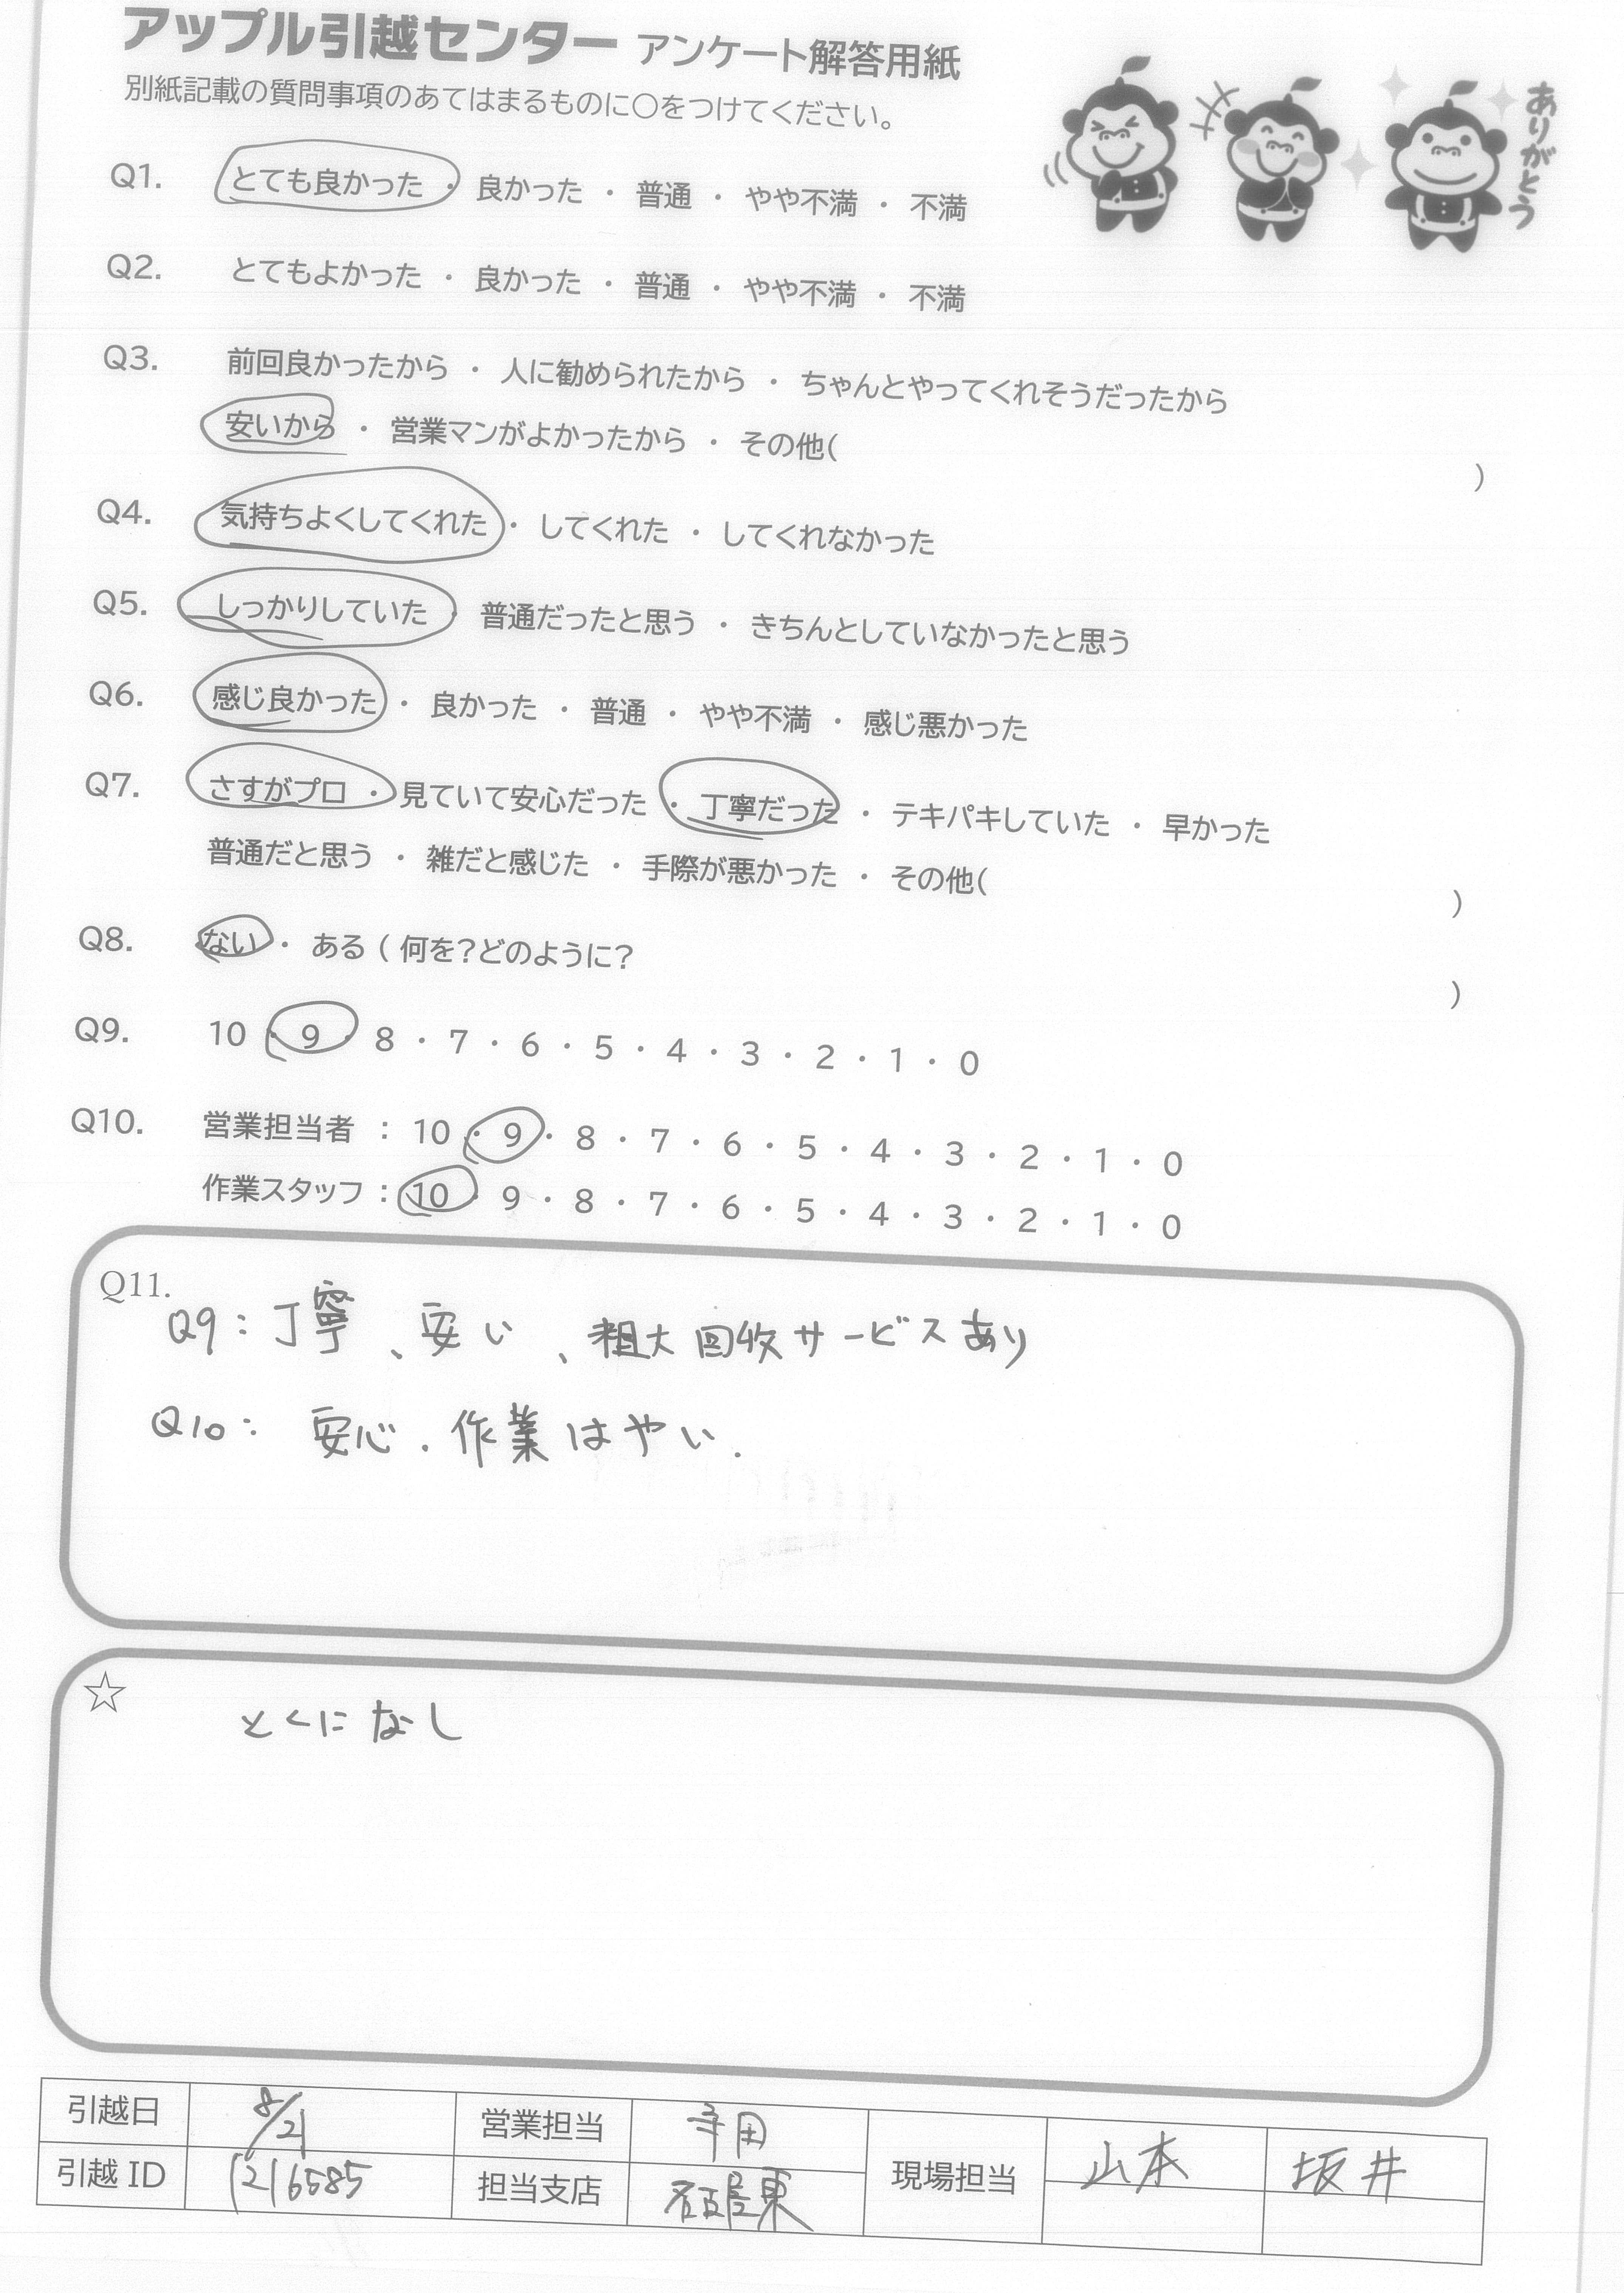 アップル引越センター アンケート解答用紙
別紙記載の質問事項のあてはまるものに〇をつけてください。
ありがとう
Q1. とても良かった ・ 良かった ・ 普通 ・ やや不満 ・ 不満
Q2. とてもよかった ・ 良かった ・ 普通 ・ やや不満 ・ 不満
Q3. 前回良かったから ・ 人に勧められたから ・ ちゃんとやってくれそうだったから
安いから ・ 営業マンがよかったから ・ その他( )
Q4. 気持ちよくしてくれた ・ してくれた ・ してくれなかった
Q5. しっかりしていた ・ 普通だったと思う ・ きちんとしていなかったと思う
Q6. 感じ良かった ・ 良かった ・ 普通 ・ やや不満 ・ 感じ悪かった
Q7. さすがプロ ・ 見ていて安心だった ・ 丁寧だった ・ テキパキしていた ・ 早かった
普通だと思う ・ 雑だと感じた ・ 手際が悪かった ・ その他( )
Q8. ない ・ ある ( 何を?どのように? )
Q9. 10 ・ 9 ・ 8 ・ 7 ・ 6 ・ 5 ・ 4 ・ 3 ・ 2 ・ 1 ・ 0
Q10. 営業担当者 : 10 ・ 9 ・ 8 ・ 7 ・ 6 ・ 5 ・ 4 ・ 3 ・ 2 ・ 1 ・ 0
作業スタッフ : 10 ・ 9 ・ 8 ・ 7 ・ 6 ・ 5 ・ 4 ・ 3 ・ 2 ・ 1 ・ 0
Q11.
Q9:丁寧、安い、粗大回収サービスあり
Q10: 安心.作業はやい.
☆ とくになし
引越日 8/21 営業担当 現場担当 山本 坂井
引越 ID 1216585 担当支店 名古屋東